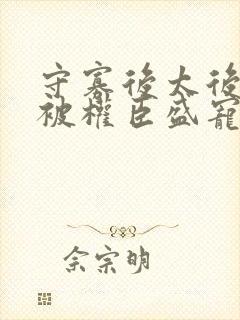 守寡後太後
被權臣盛寵
佘宗明